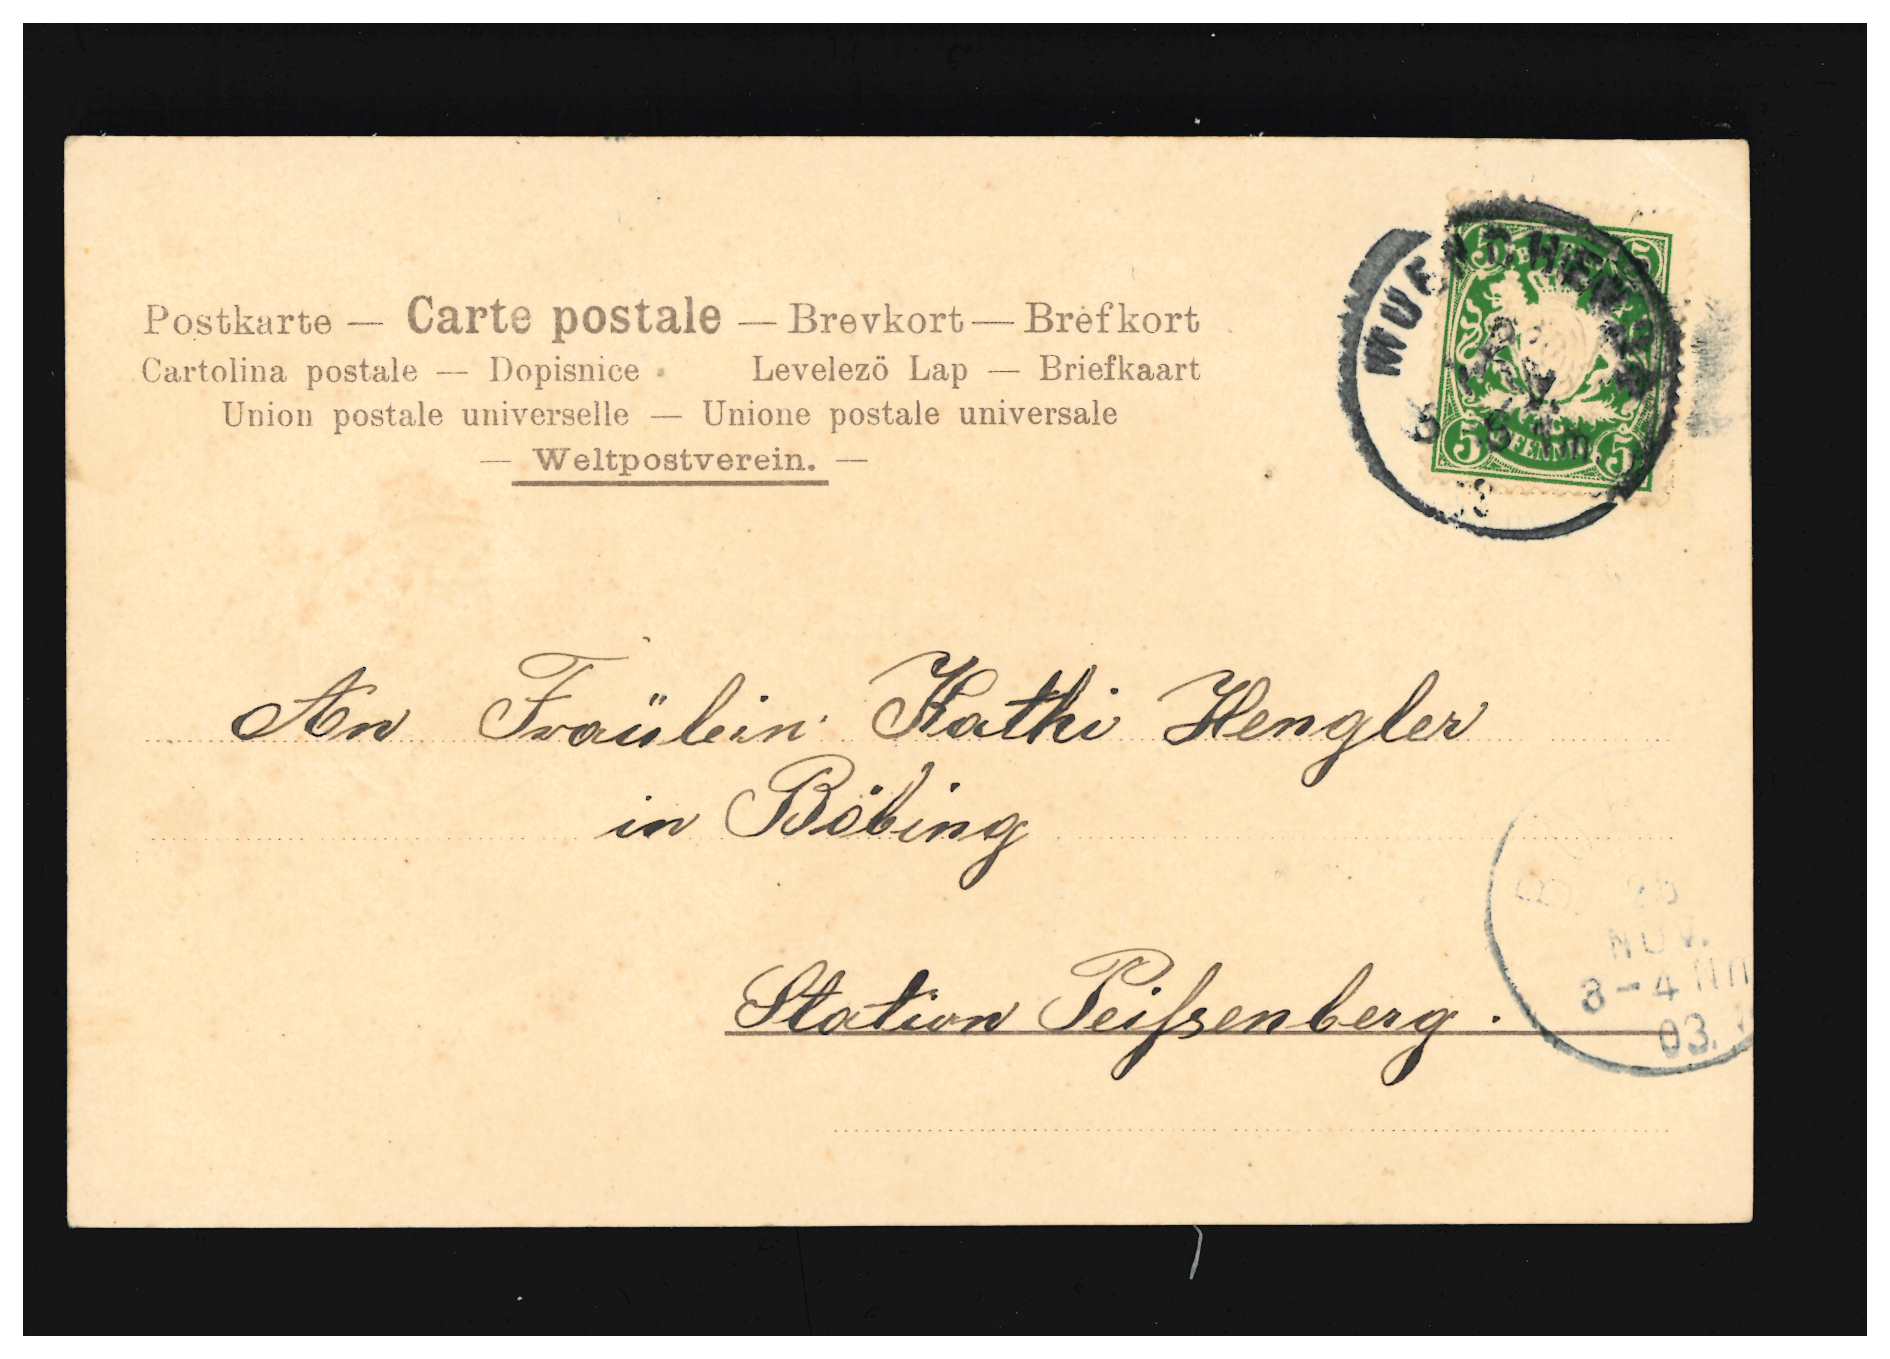 Postkarte — Carte postale — Brevkort — Brefkort
Cartolina postale — Dopisnice Levelezö Lap — Briefkaart
Union postale universelle — Unione postale universale
— Weltpostverein. —
MUENCHEN
5 5
NOV.
5 PFENNIG 5
An Fräulein Kathi Hengler
in Böbing
NOV.
3-4 Nm
03.
Station Peißenberg.